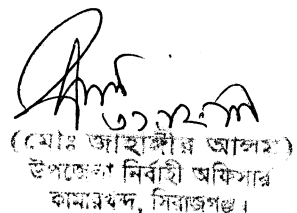 (মোঃ জাহাঙ্গীর আলম)
উপজেলা নির্বাহী অফিসার
কামারখন্দ, সিরাজগঞ্জ।